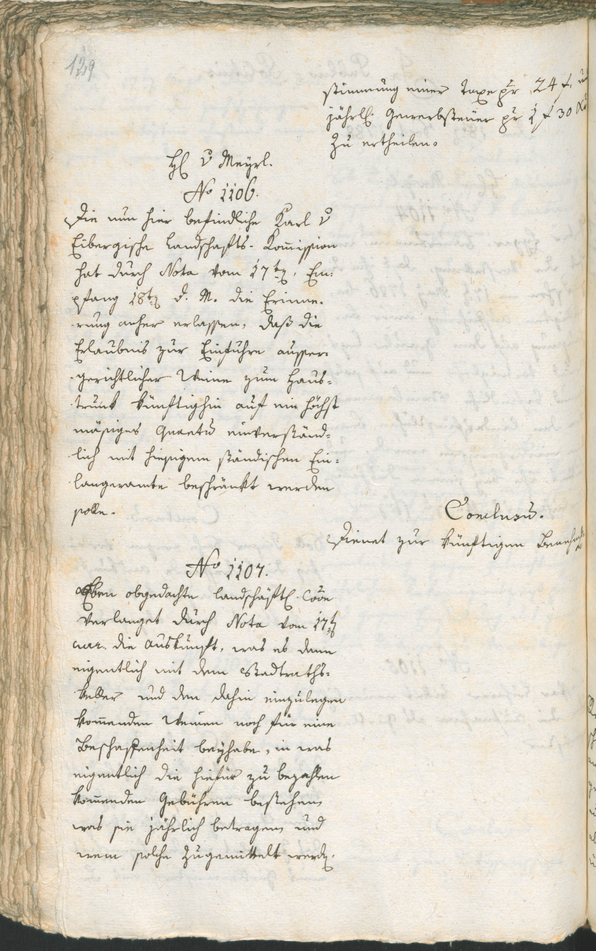 139
stimmung einer Taxe pr 24 f. u
jährl. Gewerbsteuer pr 1 f 30 x
zu ertheilen.
H. v Meyrl.
No 1106.
Die nun hier befindliche Karl v
Eibergische Landschafts-Kommission
hat durch Nota vom 17ten, Em:
pfang 18ten d. M. die Erinne:
rung anher erlassen, daß die
Erlaubnis zur Einfuhre ausser:
gerichtlicher Weine zum Haus:
trunk künftighin auf ein höchst
mäsiges Quantum einverständ:
lich mit hiesigem ständischen Ein:
langeramte beschränkt werden
solle.
Conclusum.
Dienet zur künftigen
No 1107.
Eben obgedachte landschaftl. Coon
verlanget durch Nota vom 17ten
curr. die Auskunft, was es denn
eigentlich mit dem Stadtraths:
keller und den dahin einzulegen
kommenden Weinen noch für eine
Beschaffenheit beyhabe, in was
eigentlich die hiefür zu bezahlen
kommenden Gebühren bestehen,
was sie jährlich betragen und
wem solche zugemittelt werden.